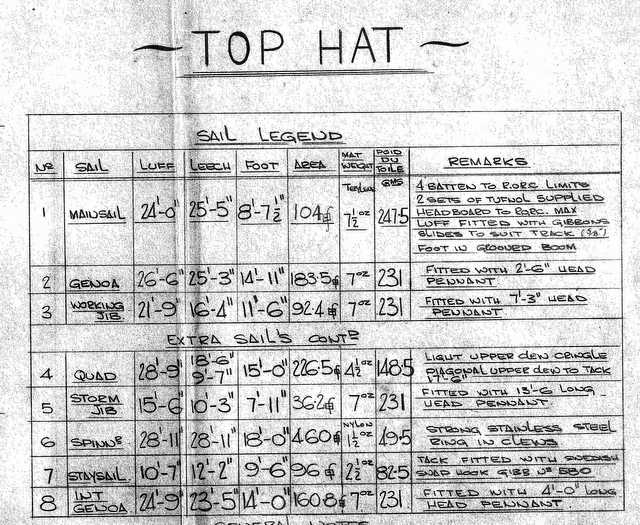 ~ TOP HAT ~
SAIL LEGEND
No SAIL LUFF LEECH FOOT AREA MAT WEIGHT POID DU TOILE REMARKS
1 MAINSAIL 24'-0" 25'-5" 8'-7½" 104 TERYLENE 7½oz GMS 247.5 4 BATTEN TO R.O.R.C. LIMITS
2 SETS OF TUFNOL SUPPLIED
HEADBOARD TO R.O.R.C. MAX
LUFF FITTED WITH GIBBONS
SLIDES TO SUIT TRACK (5/8")
FOOT IN GROOVED BOOM
2 GENOA 26'-6" 25'-3" 14'-11" 183.5 7oz 231 FITTED WITH 2'-6" HEAD
PENNANT
3 WORKING JIB 21'-9" 16'-4" 11'-6" 92.4 7oz 231 FITTED WITH 7'-3" HEAD
PENNANT
EXTRA SAIL'S CONTD
4 QUAD 28'-9" 18'-6" 9'-7" 15'-0" 226.5 4½oz 148.5 LIGHT UPPER CLEW CRINGLE
DIAGONAL UPPER CLEW TO TACK
17'-6"
5 STORM JIB 15'-6" 10'-3" 7'-11" 36.2 7oz 231 FITTED WITH 13'-6 LONG
HEAD PENNANT
6 SPINNR 28'-11" 28'-11" 18'-0" 460 NYLON 1½oz 49.5 STRONG STAINLESS STEEL
RING IN CLEWS
7 STAYSAIL 10'-7" 12'-2" 9'-6" 96 2½oz 82.5 TACK FITTED WITH SWEDISH
SNAP HOOK GIBB No 580
8 INT GENOA 24'-9" 23'-5" 14'-0" 160.8 7oz 231 FITTED WITH 4'-0" LONG
HEAD PENNANT
GENERAL NOTES